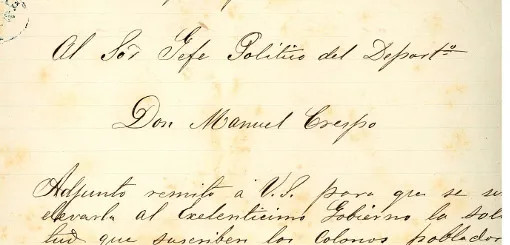 Al Sor Gefe Politico del Departo
Don Manuel Crespo
Adjunto remito á V.S. para que se
elevarla al Exelenticimo Gobierno la soli
tud que suscriben los Colonos poblador